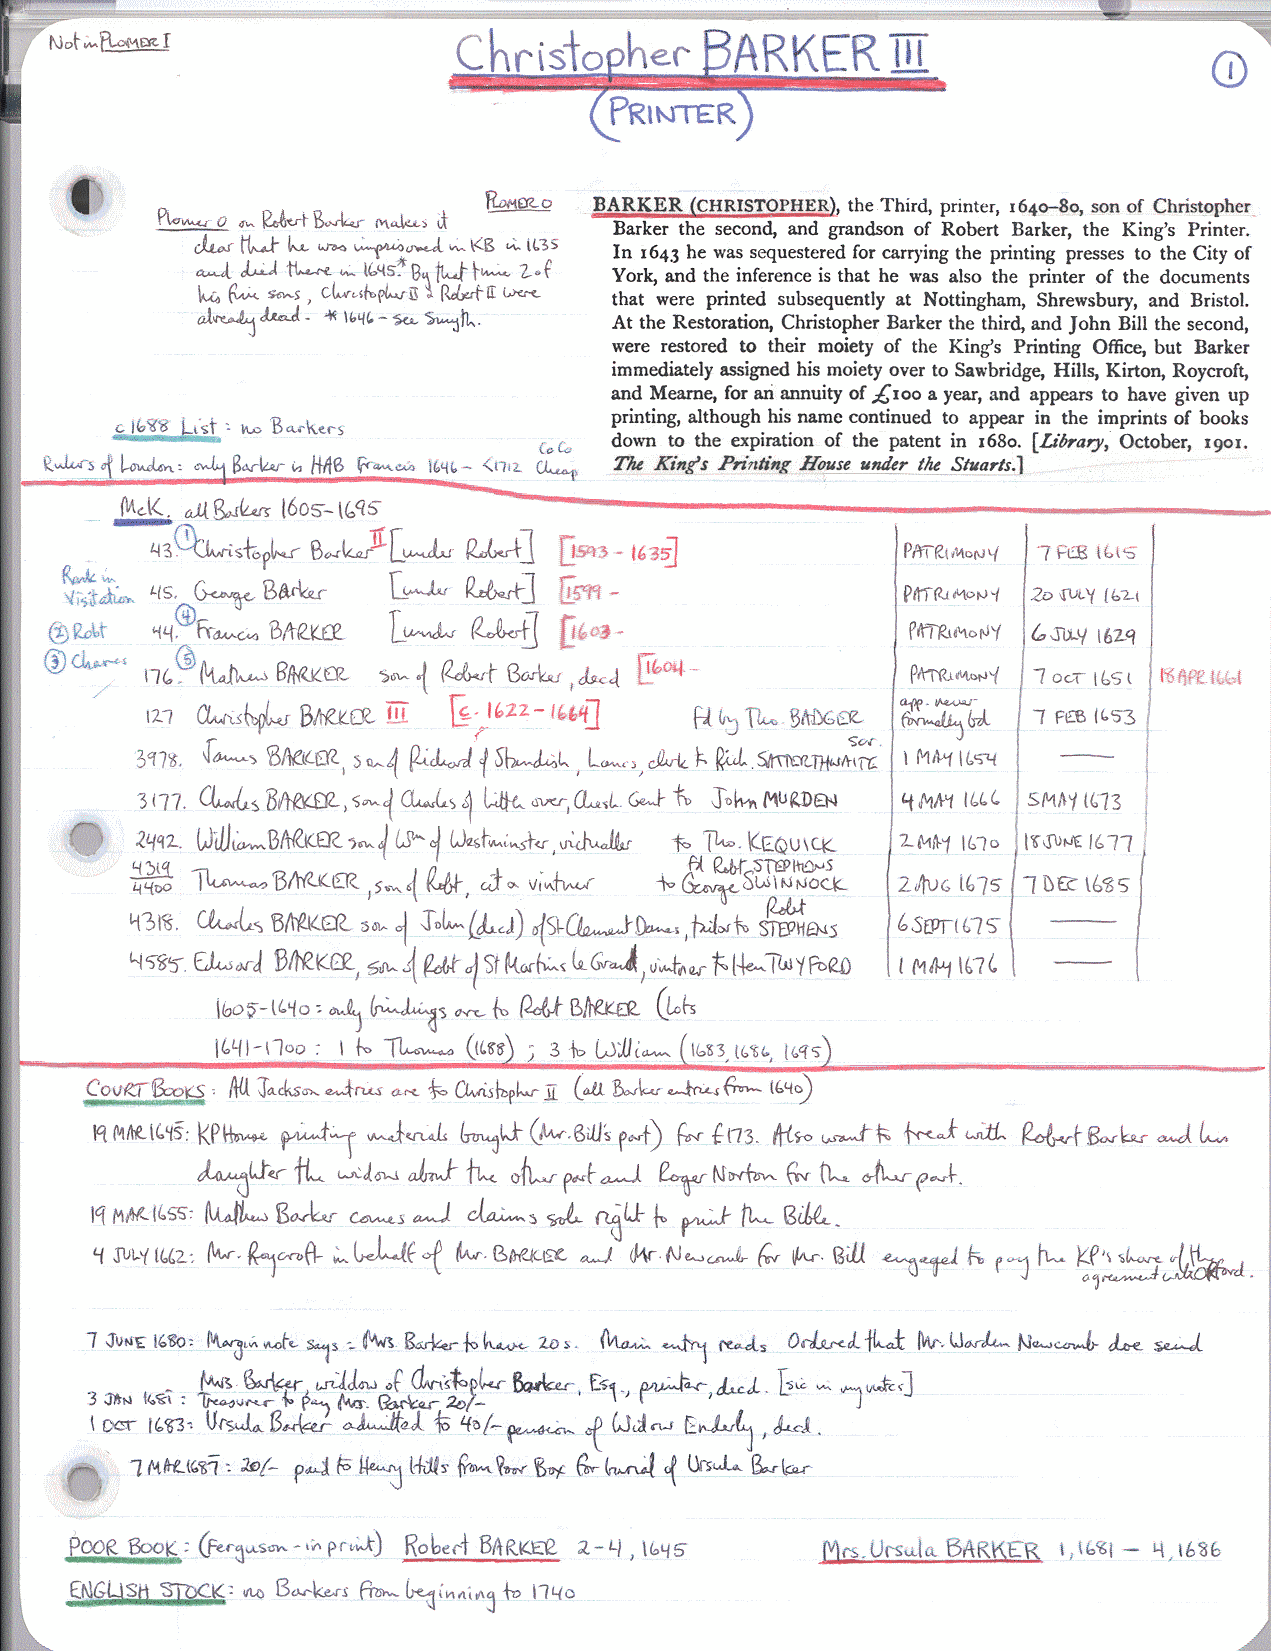 Not in PLOMER I
Christopher BARKER III
1
(PRINTER)
PLOMER O
Plomer O on Robert Barker makes it
clear that he was imprisoned in KB in 1635
and died there in 1645.* By that time 2 of
his five sons, Christopher II & Robert II were
already dead - * 1646 - see Smyth.
BARKER (CHRISTOPHER), the Third, printer, 1640-80, son of Christopher
Barker the second, and grandson of Robert Barker, the King's Printer.
In 1643 he was sequestered for carrying the printing presses to the City of
York, and the inference is that he was also the printer of the documents
that were printed subsequently at Nottingham, Shrewsbury, and Bristol.
At the Restoration, Christopher Barker the third, and John Bill the second,
were restored to their moiety of the King's Printing Office, but Barker
immediately assigned his moiety over to Sawbridge, Hills, Kirton, Roycroft,
and Mearne, for an annuity of £100 a year, and appears to have given up
printing, although his name continued to appear in the imprints of books
down to the expiration of the patent in 1680. [Library, October, 1901.
The King's Printing House under the Stuarts.]
c1688 List: no Barkers
Rulers of London: only Barker is HAB Francis 1646 - <1712 CoCo Cheap
McK. all Barkers 1605-1695
43. 1 Christopher Barker II [under Robert] [1593 - 1635] PATRIMONY 7 FEB 1615
Rank in
Visitation
45. George Barker [under Robert] [1599 - PATRIMONY 20 JULY 1621
2 Robt
44. 4 Francis BARKER [under Robert] [1603 - PATRIMONY 6 JULY 1629
3 Charles
176. 5 Mathew BARKER son of Robert Barker, decd [1604 - PATRIMONY 7 OCT 1651 18 APR 1661
127 Christopher BARKER III [c. 1622-1664] fd by Tho. BADGER app. never formally bd 7 FEB 1653
3978. James BARKER, son of Richard of Standish, Lancs, clerk to Rich. SATTERTHWAITE scr. 1 MAY 1654 —
3177. Charles BARKER, son of Charles of Litth over, Chesh. Gent to John MURDEN 4 MAY 1666 5 MAY 1673
2492. William BARKER son of Wm of Westminster, victualler to Tho. KEQUICK 2 MAY 1670 18 JUNE 1677
4319
4400 Thomas BARKER, son of Robt, cit a vintner to George SWINNOCK fd Robt. STEPHENS 2 AUG 1675 7 DEC 1685
4318. Charles BARKER son of John (decd) of St Clement Danes, tailor to Robt STEPHENS 6 SEPT 1675 —
4585. Edward BARKER, son of Robt of St Martins le Grand, vintner to Hen TWYFORD 1 MAY 1676 —
1605-1640: only bindings are to Robt BARKER (lots
1641-1700: 1 to Thomas (1688); 3 to William (1683, 1686, 1695)
COURT BOOKS: All Jackson entries are to Christopher II (all Barker entries from 1640)
19 MAR 1645: KPHouse printing materials bought (Mr. Bill's part) for £173. Also want to treat with Robert Barker and his
daughter the widow about the other part and Roger Norton for the other part.
19 MAR 1655: Mathew Barker comes and claims sole right to print the Bible.
4 JULY 1662: Mr. Roycroft in behalf of Mr. BARKER and Mr. Newcomb for Mr. Bill engaged to pay the KP's share of the
agreement with Oxford.
7 JUNE 1680: Margin note says = Mrs. Barker to have 20s. Main entry reads Ordered that Mr. Warden Newcomb doe send
Mrs. Barker, widdow of Christopher Barker, Esq., printer, decd. [sic in my notes]
3 JAN 1681: Treasurer to pay Mrs. Barker 20/-
1 OCT 1683: Ursula Barker admitted to 40/- pension of Widow Enderly, decd.
7 MAR 1687: 20/- paid to Henry Hills from Poor Box for burial of Ursula Barker
POOR BOOK: (Ferguson - in print) Robert BARKER 2-4, 1645 Mrs. Ursula BARKER 1, 1681 - 4, 1686
ENGLISH STOCK: no Barkers from beginning to 1740